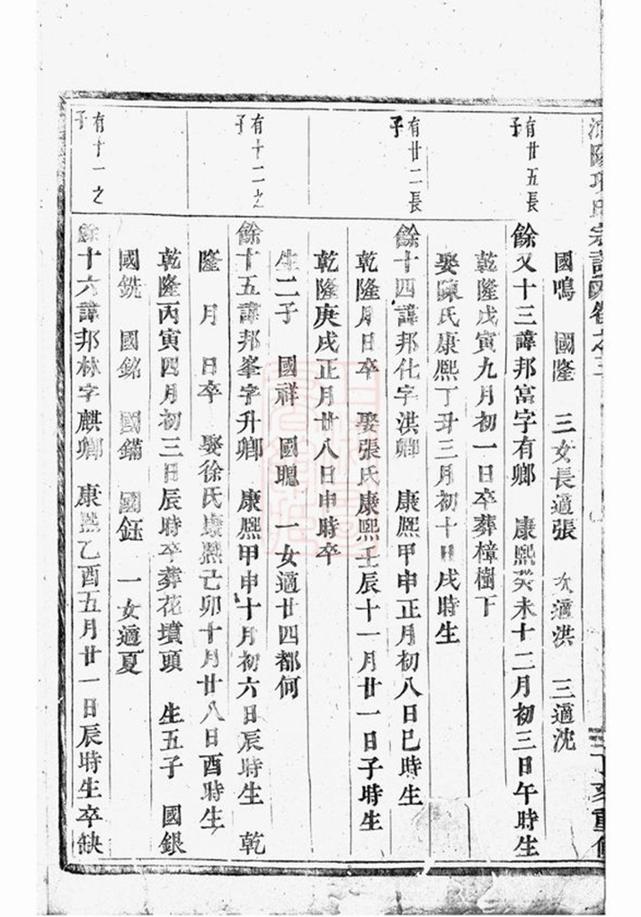 國鳴　國隆　三女長適張　次適洪　三適沈
有廿五長
子
餘又十三諱邦富字有鄉　康熙癸未十二月初三日午時生
乾隆戊寅九月初一日卒葬樟樹下
娶陳氏康熙丁丑三月初十日戌時生
有廿二長
子
餘十四諱邦仕字洪卿　康熙甲申正月初八日巳時生
乾隆　月　日卒　娶張氏康熙壬辰十一月廿一日子時生
乾隆庚戌正月廿八日申時卒
生二子　國祥　國聰　一女適廿四都何
有十二之
子
餘十五諱邦峯字升卿　康熙甲申十月初六日辰時生　乾
隆　月　日卒　娶徐氏康熙己卯十月廿八日酉時生
乾隆丙寅四月初三日辰時卒葬花墳頭　生五子　國銀
國銑　國銘　國錨　國鈺　一女適夏
有十一之
子
餘十六諱邦林字麒卿　康熙乙酉五月廿一日辰時生卒缺